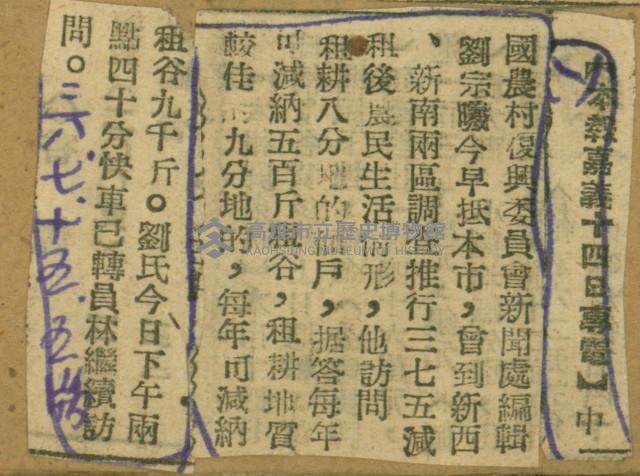 【本報嘉義十四日專電】中
國農村復興委員會新聞處編輯
劉宗曦今早抵本市，曾到新西
、新南兩區調查推行三七五減
租後農民生活情形，他訪問
租耕八分地的佃戶，据答每年
可減納五百斤租谷，租耕地質
較佳 九分地的，每年可減納
租谷九千斤。劉氏今日下午兩
點四十分快車已轉員林繼續訪
問。
三八、七、十五、五版
高雄市立歷史博物館
KAOHSIUNG MUSEUM OF HISTORY